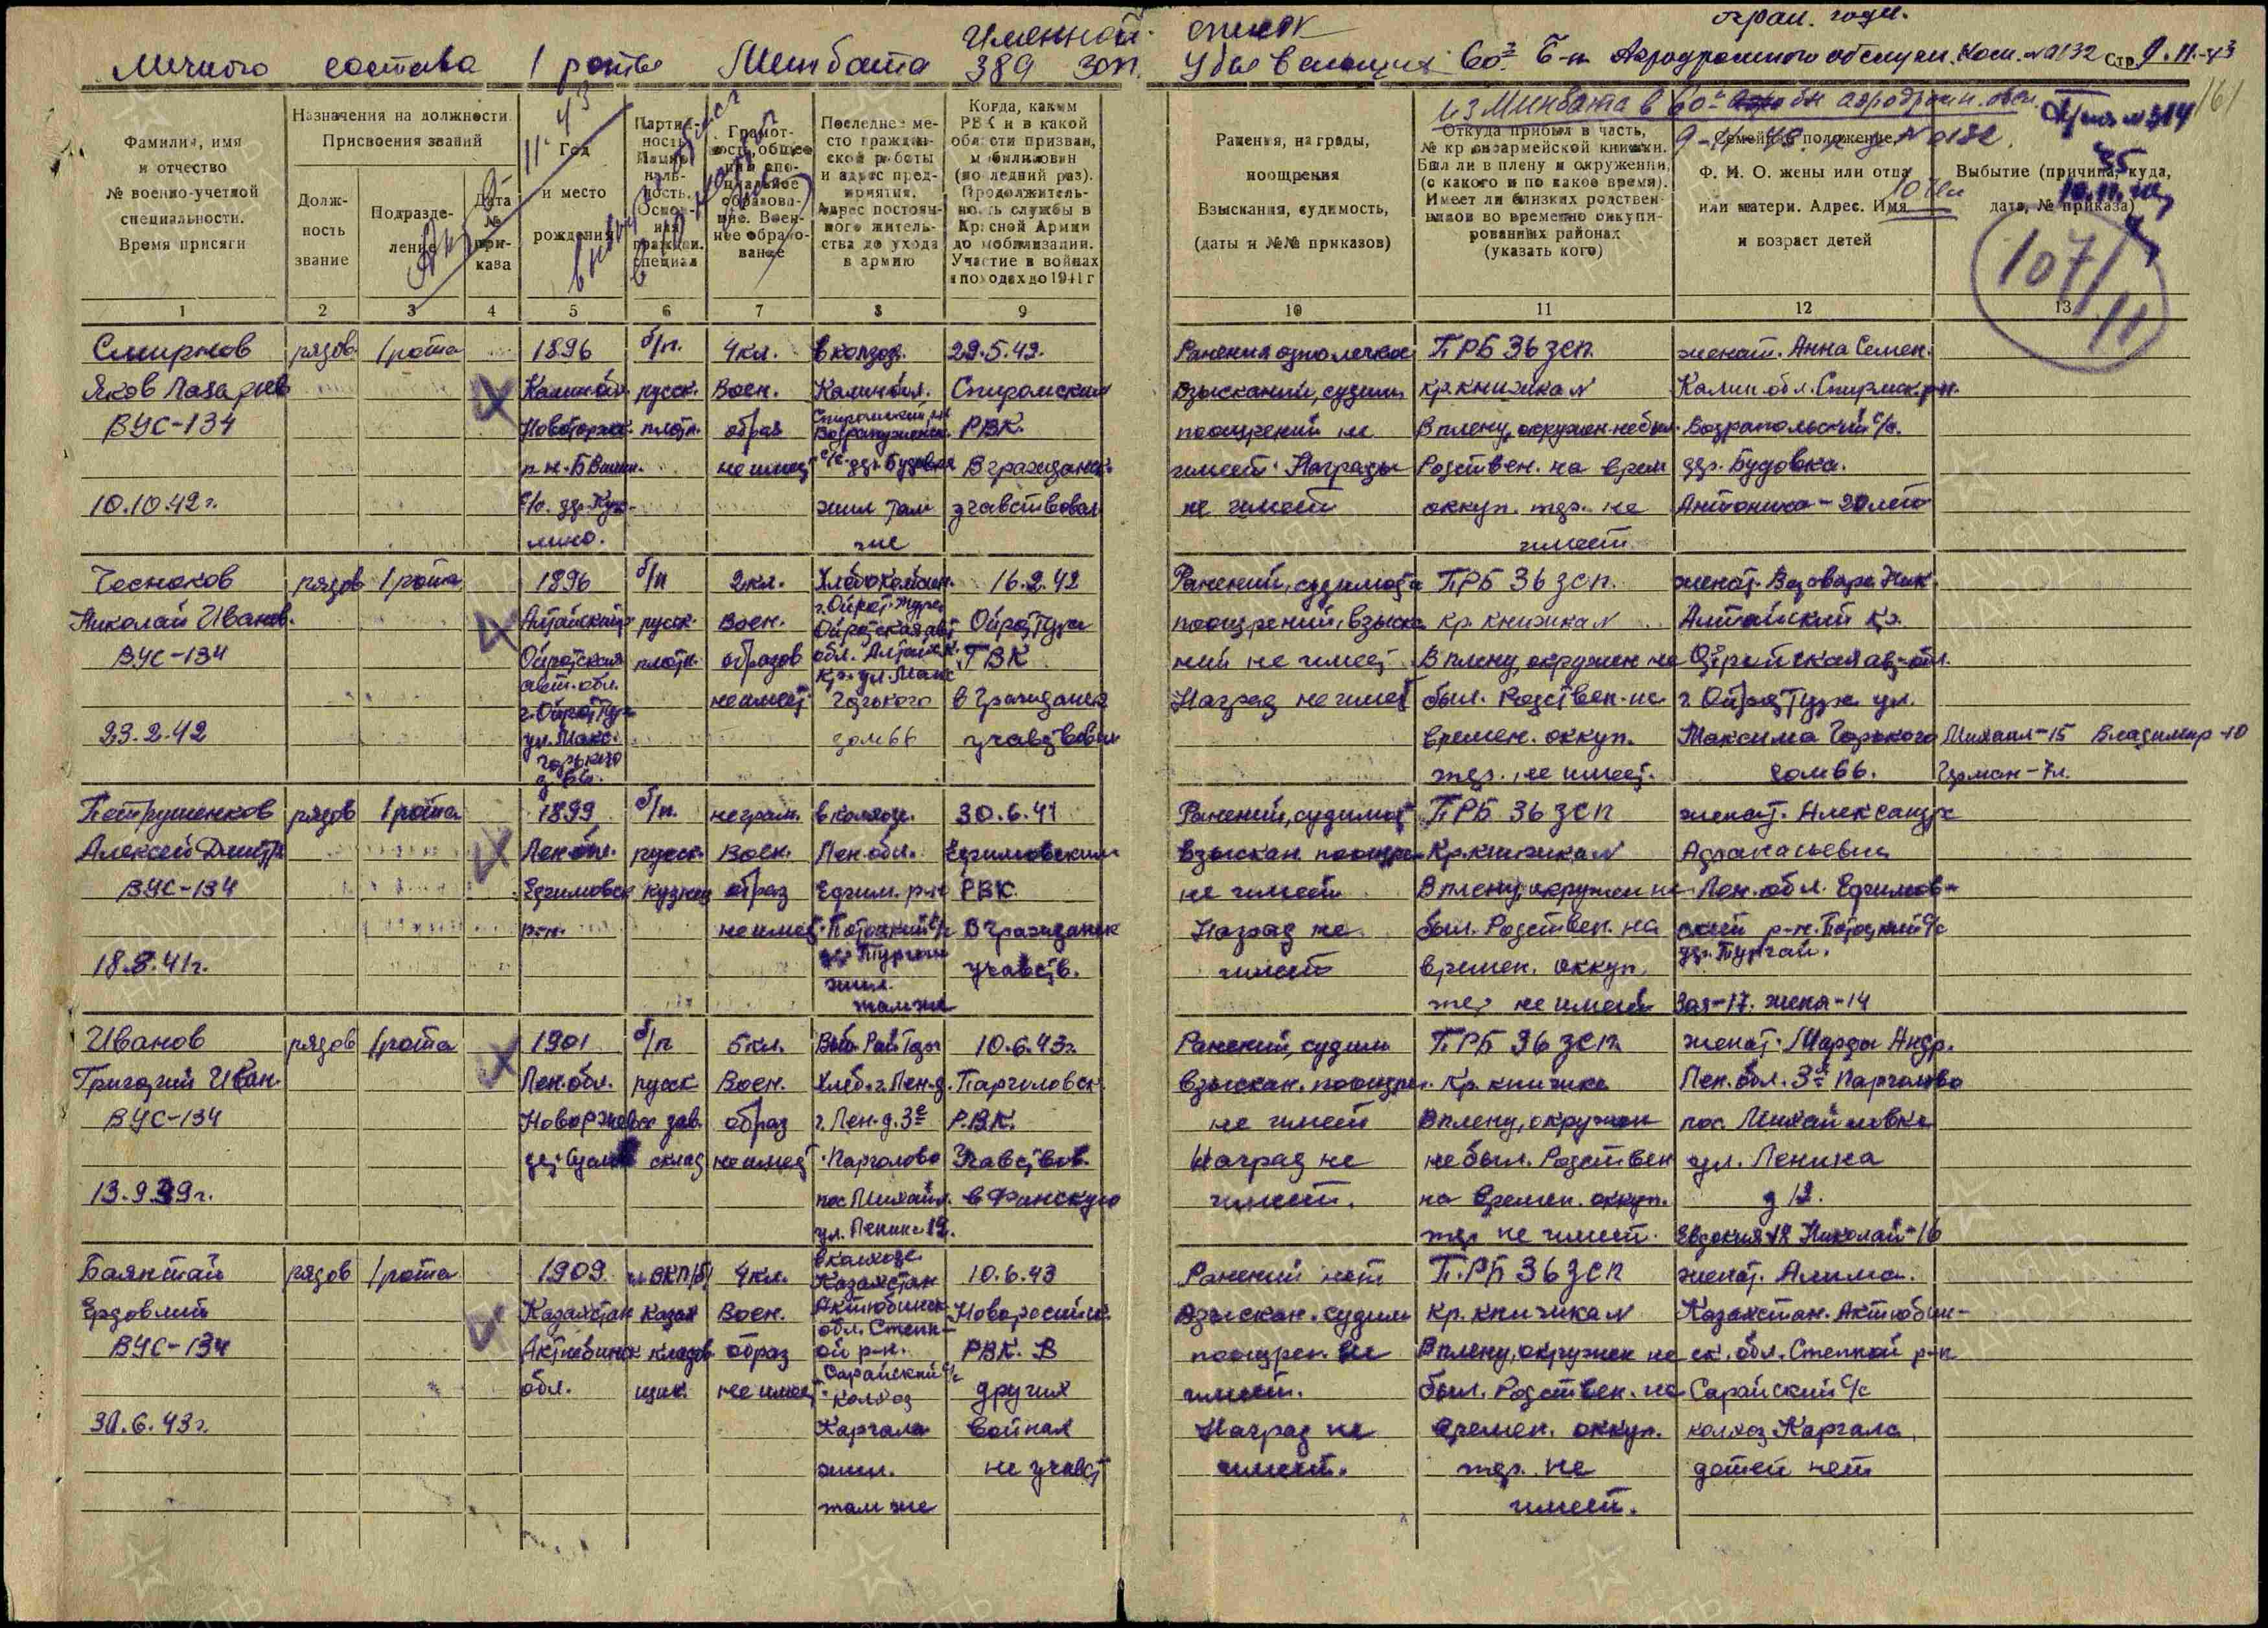 Именной список
огран. годн.
Личного состава 1 роты Минбата 389 зсп. убывающих 60й б-н Аэродромного обслужи. Ком. №0132 Стр 9.11.-43
из Минбата в 60й бн аэродромн. обсл.
9-11-43. №0132.
Приказ №314
161
35
10.11.43
107/11
Фамилия, имя
и отчество
№ военно-учетной
специальности.
Время присяги
Назначения на должности.
Присвоения званий
Долж-
ность
звание
Подразде-
ление
Дата
№
при-
каза
Год
и место
рождения
Партий-
ность.
Нацио-
наль-
ность.
Основ-
ная
граждан.
специал
Грамот-
ность, общее
или спе-
циальное
образова-
ние. Воен-
ное образо-
вание
Последнее ме-
сто граждан-
ской работы
и адрес пред-
приятия.
Адрес постоян-
ного житель-
ства до ухода
в армию
Когда, каким
РВК и в какой
области призван,
мобилизован
(последний раз).
Продолжитель-
ность службы в
Красной Армии
до мобилизации.
Участие в войнах
и походах до 1941 г
Ранения, награды,
поощрения
Взыскания, судимость,
(даты и №№ приказов)
Откуда прибыл в часть,
№ кр оноармейской книжки.
Был ли в плену и окружении,
(с какого и по какое время).
Имеет ли близких родствен-
ников во временно оккупи-
рованных районах
(указать кого)
Семейное положение,
Ф. И. О. жены или отца
или матери. Адрес. Имя
и возраст детей
Выбытие (причина, куда,
дата, № приказа)
1 2 3 4 5 6 7 8 9 10 11 12 13
Смирнов рядов. 1 рота 1896 б/п. 4 кл. в колхоз. 29.5.42. Ранения одно легкое ПРБ 36 зсп. женат. Анна Семен.
Яков Лазарев Калин обл. русск. Воен. Калин обл. Спировским взысканий, судим кр. книжка № Калин. обл. Спировск. р-н.
ВУС-134 Новоторжс. плотн. образ Спировский р-н РВК. поощрений не В плену, окружен не был. с/с.
р-н. не имеет с/с. др. Будовка В гражданск. имеет. Награды Родствен. на врем др. Будовка.
10.10.42 г. с/с. др. Кух- жил там участвовал не имеет оккуп. тер. не Антонина - 20 лет
лино. же имеет
Чесноков рядов 1 рота 1896 б/п 2 кл. Хлебокомбин. 16.2.42 Ранений, судимости ПРБ 36 зсп. женат. Варвара Ник.
Николай Иванов. Алтайский русск. Воен. г. Ойрот-Тура Ойрот Тура поощрений, взыска кр. книжка № Алтайский кр.
ВУС-134 Ойротская плотн. образов Ойротская авт. обл. Алтайск. ГВК ний не имеет В плену, окружен не Ойротская авт-обл.
авт. обл. не имеет кр. ул. Макс Горького в Гражданск Наград не имеет был. Родствен. на г. Ойрот Тура ул.
23.2.42 г. Ойрот Тура ул. Макс. дом 66 участвовал времен. оккуп. Максима Горького Михаил-15 Владимир-10
Горького д. 66. тер. не имеет. дом 66. Герман-7 л.
Петрушенков рядов 1 рота 1899 б/п. неграм. в колхозе. 30.6.41 Ранений, судимост ПРБ 36 зсп женат. Александра
Алексей Дмитр Лен обл. русск. Воен. Лен. обл. Ефимовским взыскан. поощрен Кр. книжка № Афанасьевна
ВУС-134 Ефимовск кузнец образ Ефим. р-н РВК. не имеет В плену, окружен не Лен. обл. Ефимов-
р-н. не имеет. с/с В Гражданск Наград не был. Родствен. на ский р-н. с/с
18.8.41 г. жил. там же участв. имеет времен. оккуп. др. Тургай.
тер. не имеет Зоя-17. женя-14
Иванов рядов 1 рота 1901 б/п 5 кл. 10.6.43 г. Ранений, судим ПРБ 36 зсп. женат. Марфа Андр.
Григорий Иван. Лен. обл. русск Воен. Хлеб. г. Лен-д. Парголовск. взыскан. поощрен. Кр. книжка Лен. обл. 3е Парголово
ВУС-134 Новоржевск зав. образ г. Лен-д. 3е Р.В.К. не имеет В плену, окружен пос. Михайловка
склад не имеет Парголово Участвов. Наград не не был. Родствен ул. Ленина
13.9.39 г. пос Михайл. в Финскую имеет. на времен. оккуп. д 12.
ул. Ленина 12. тер. не имеет. Евдокия 18 Николай-16
Баянтай рядов 1 рота 1909. чл. ВКП(б) 4 кл. в колхозе. Казахстан 10.6.43 Ранений нет П.РБ 36 зсп женат. Алима.
Ердовлит Казахстан казах Воен. Актюбинск обл. Степн- Новоросийск. Взыскан. судим кр. книжка № Казахстан. Актюбин-
ВУС-134 Актюбинск кладов образ ой р-н. РВК. В поощрен. не В плену, окружен не ск. обл. Степной р-н
обл. щик. не имеет Сарайский с/с колхоз других имеет. был. Родствен. на Сарайский с/с
30.6.43 г. Каргала войнах Наград не времен. оккуп. колхоз Каргала.
жил. не участ имеет. тер. не детей нет
там же имеет.